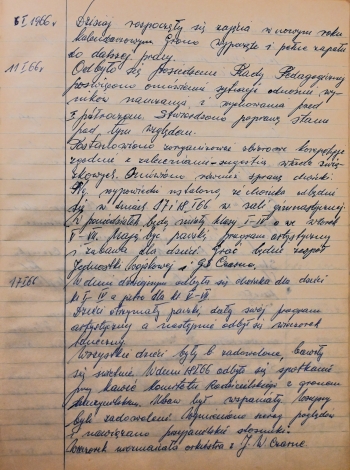 8 I 1966 r Dzisiaj rozpoczęły się zajęcia w nowym roku
kalendarzowym. Grono wypoczęte i pełne zapału
do dalszej pracy.
11 I 66 r. Odbyło się posiedzenie Rady Pedagogicznej
poświęcone omówieniu sytuacji odnośnie wy-
ników nauczania i wychowania przed
I półroczem. Stwierdzono poprawę stanu
pod tym względem.
Postanowiono zorganizować zbiorowe korepetycje
zgodnie z zaleceniami - sugestią władz zwią-
zkowych. Omówiono również sprawę choinki.
że choinka odbędzie
się w dniach 17 i 18 I 66 w sali gimnastycznej
W poniedziałek będą miały klasy I-IV a we wtorek
V - VII. Mają być paczki, program artystyczny
i zabawa dla dzieci. Grać będzie zespół
Jednostki Wojskowej z Czarne.
17 I 66 W dniu dzisiejszym odbyła się choinka dla dzieci
kl I-IV a jutro dla kl V-VII.
Dzieci otrzymały paczki, dały swój program
artystyczny a następnie odbył się wieczorek
taneczny.
Wszystkie dzieci były b. zadowolone, bawiły
się świetnie. W dniu 18 I 66 odbyło się spotkanie
przy kawie Komitetu Rodzicielskiego z gronem
nauczycielskim. Ubaw był wspaniały. Wszyscy
byli zadowoleni. Wymieniono szereg poglądów
i nawiązano przyjacielskie stosunki.
Wieczorek orkiestra z J. W Czarne.